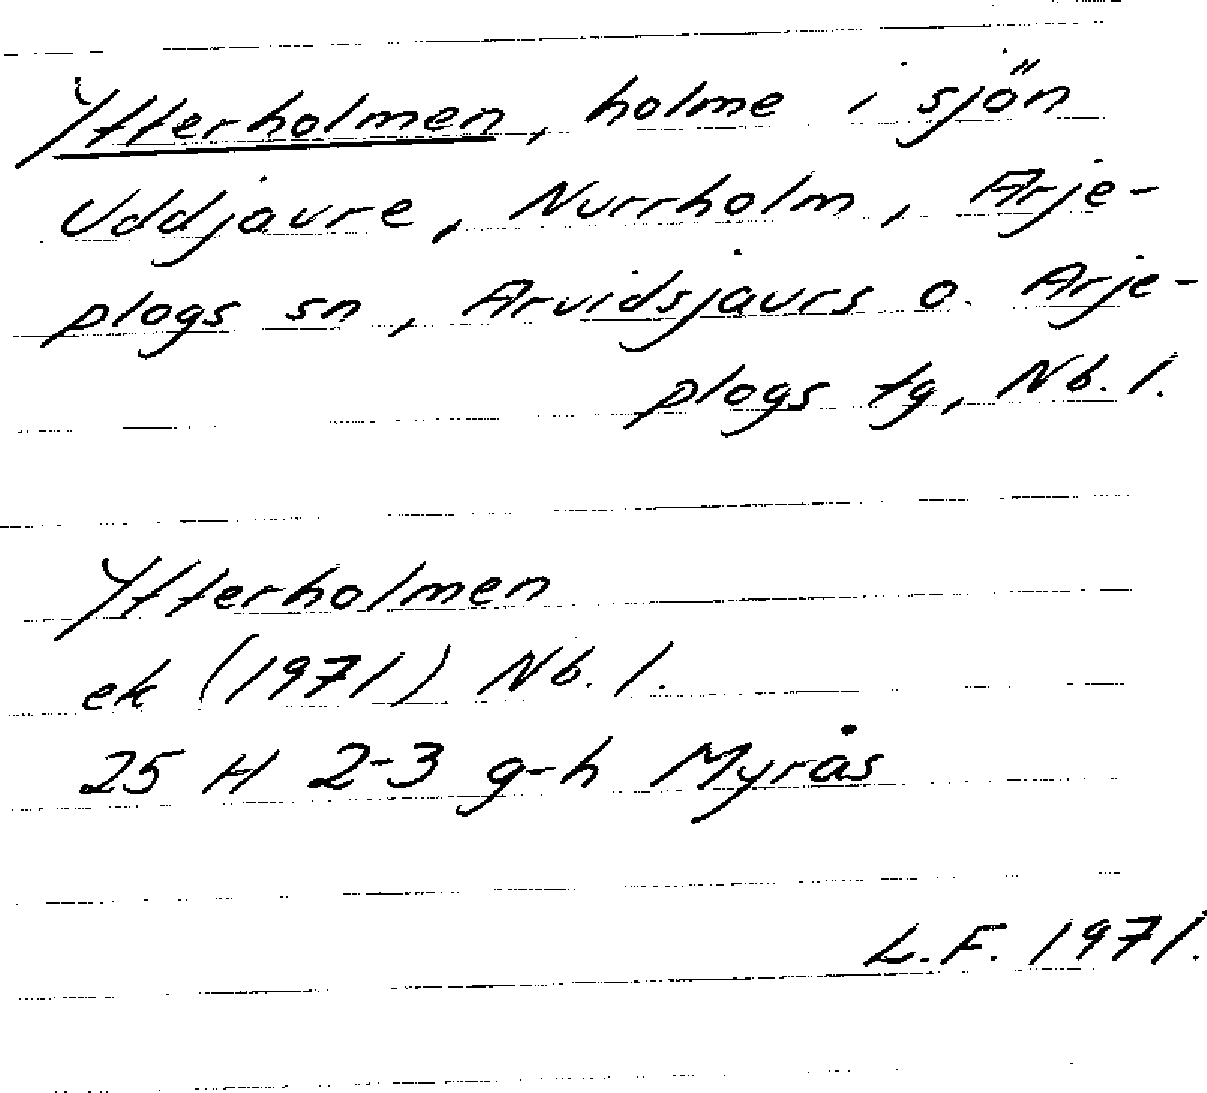 Ytterholmen, holme i sjön
Uddjaure, Nurrholm, Arje-
plogs sn, Arvidsjaurs o. Arje-
plogs tg, Nb. l.
Ytterholmen
ek (1971) Nb. l.
25 H 2-3 g-h Myrås
L.F. 1971.